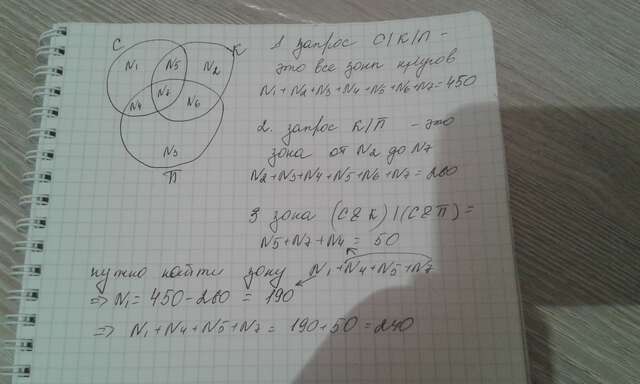 С
К
N1
N5
N2
N7
N4
N6
N3
П
1 запрос С|К|П -
это все зоны кругов
N1+N2+N3+N4+N5+N6+N7=450
2. запрос К|П - это
зона от N2 до N7
N2+N3+N4+N5+N6+N7=260
3 зона (С&К)|(С&П)=
N5+N7+N4= 50
нужно найти зону N1+N4+N5+N7
⇒N1=450-260 = 190
⇒ N1+N4+N5+N7= 190+50=240